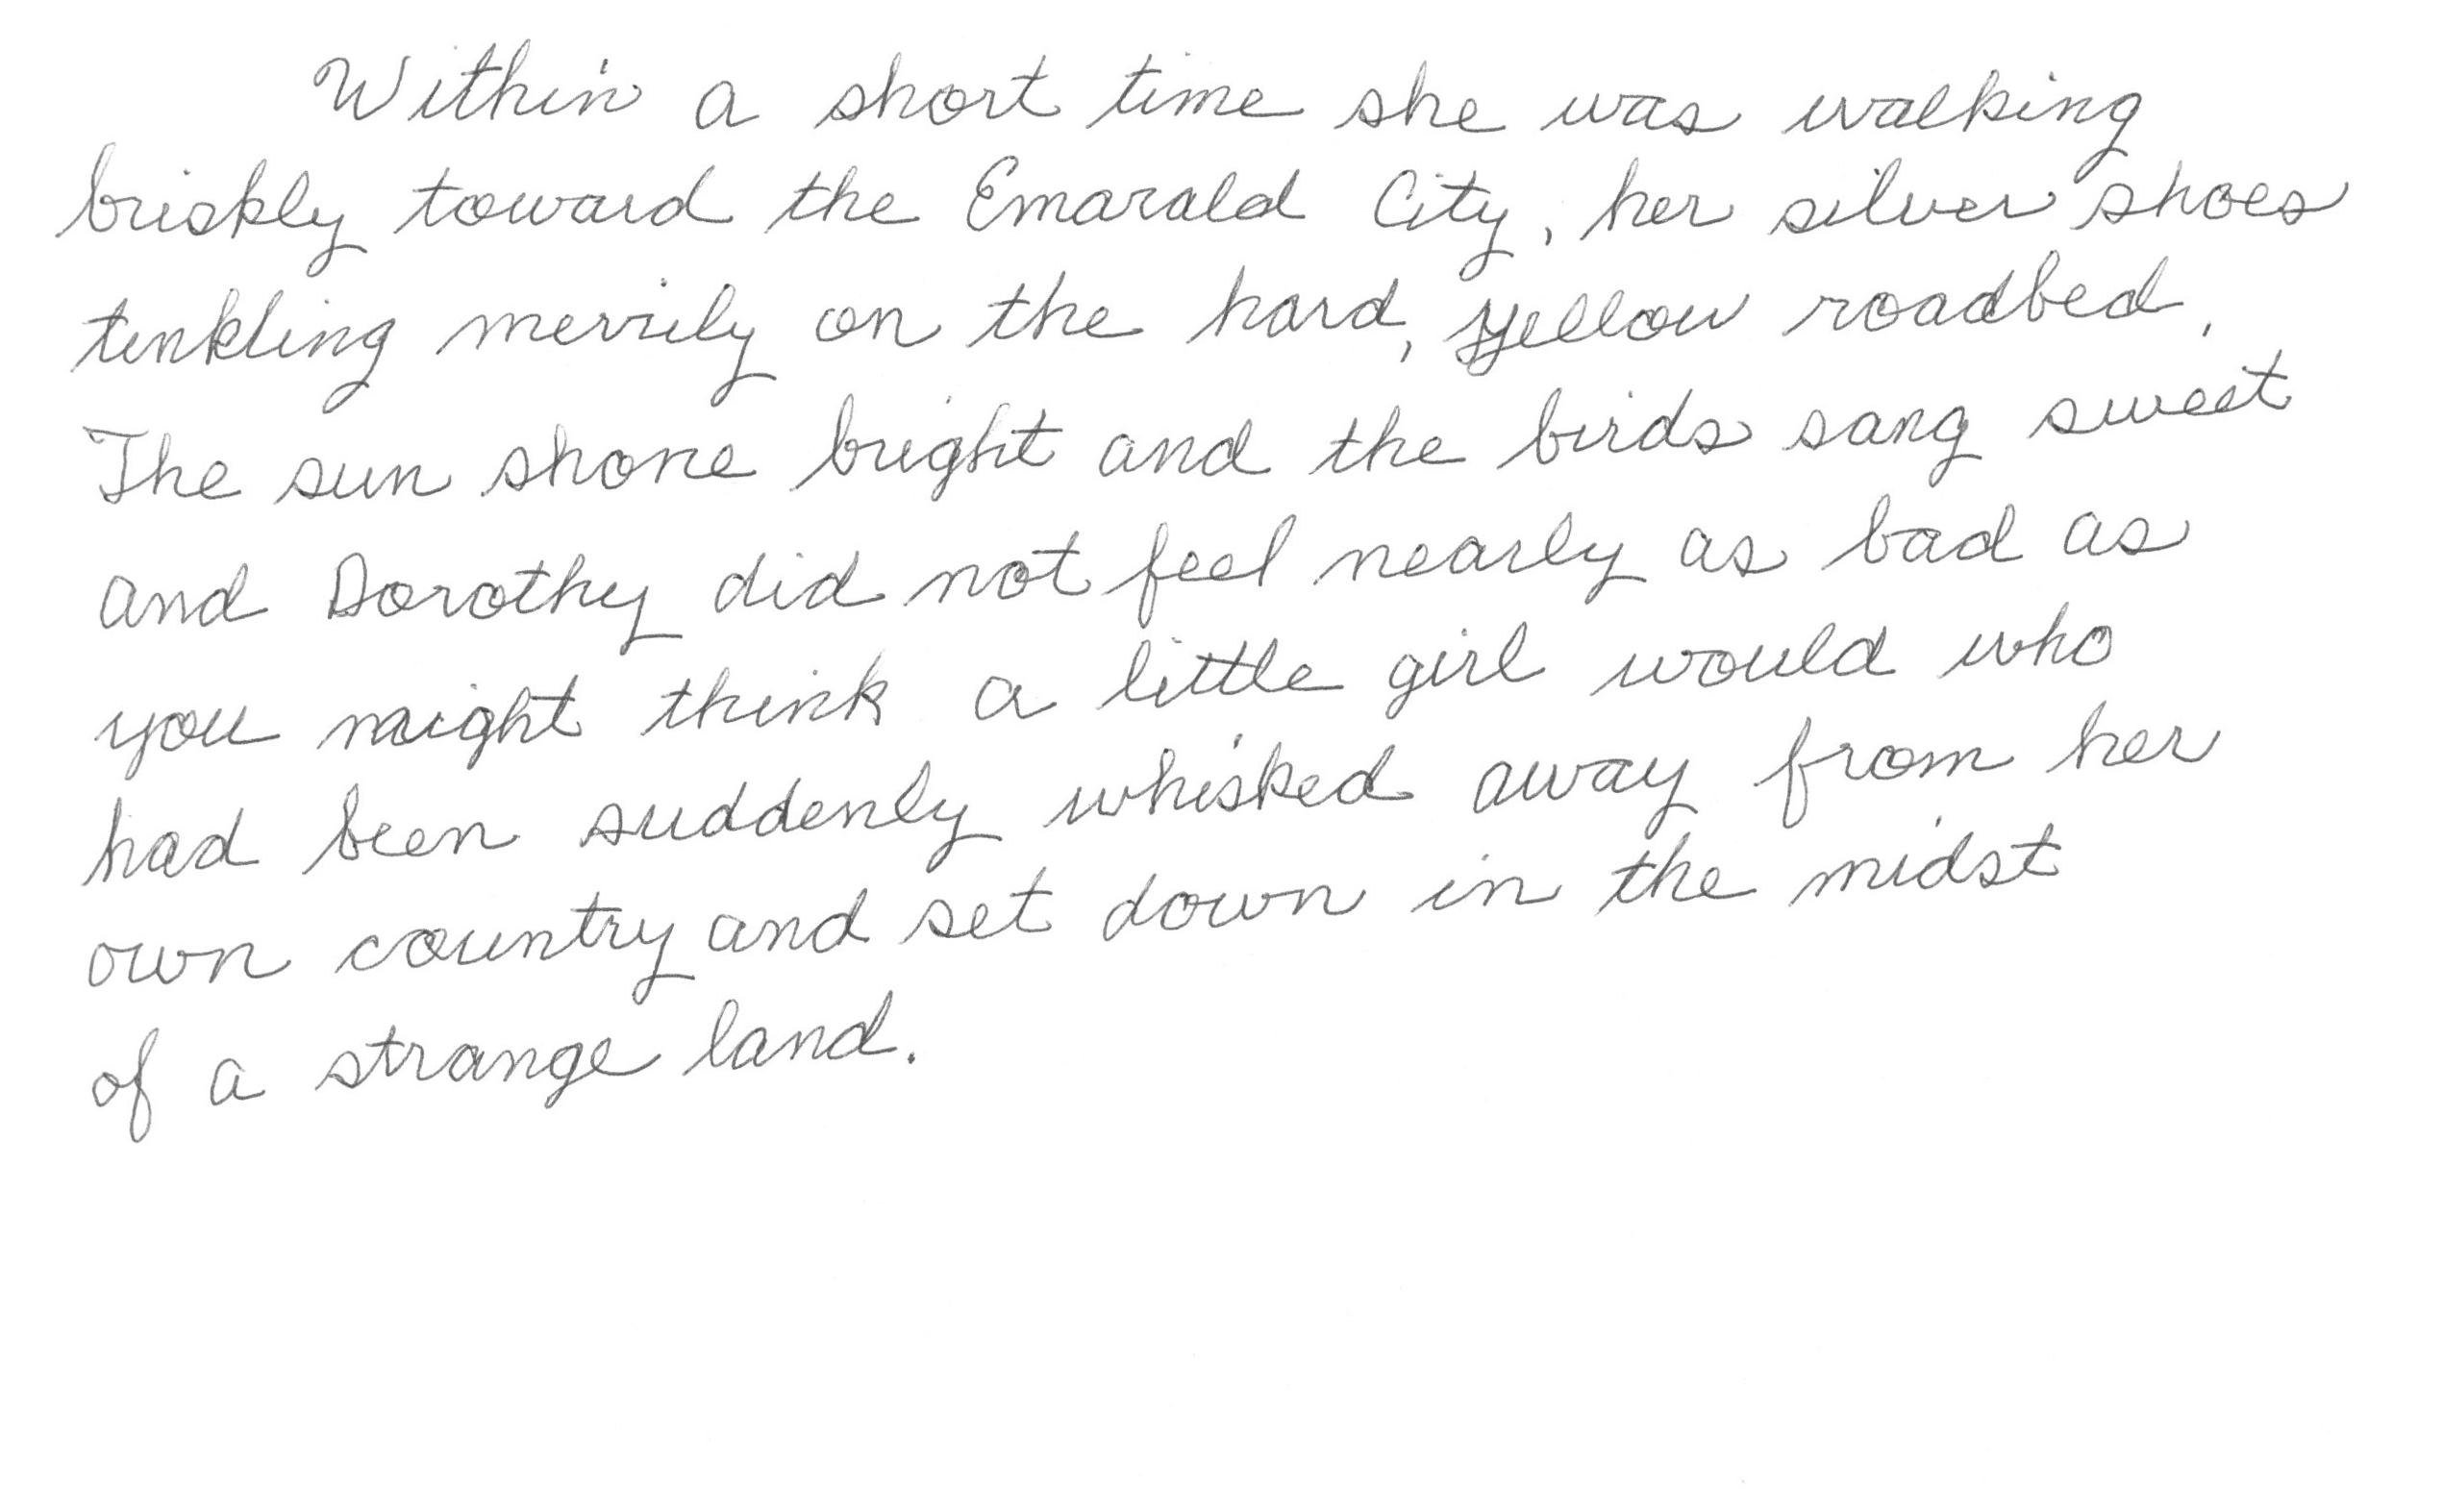 Within a short time she was walking
briskly toward the Emarald City, her silver shoes
tinkling merrily on the hard, yellow roadbed.
The sun shone bright and the birds sang sweet
and Dorothy did not feel nearly as bad as
you might think a little girl would who
had been suddenly whisked away from her
own country and set down in the midst
of a strange land.